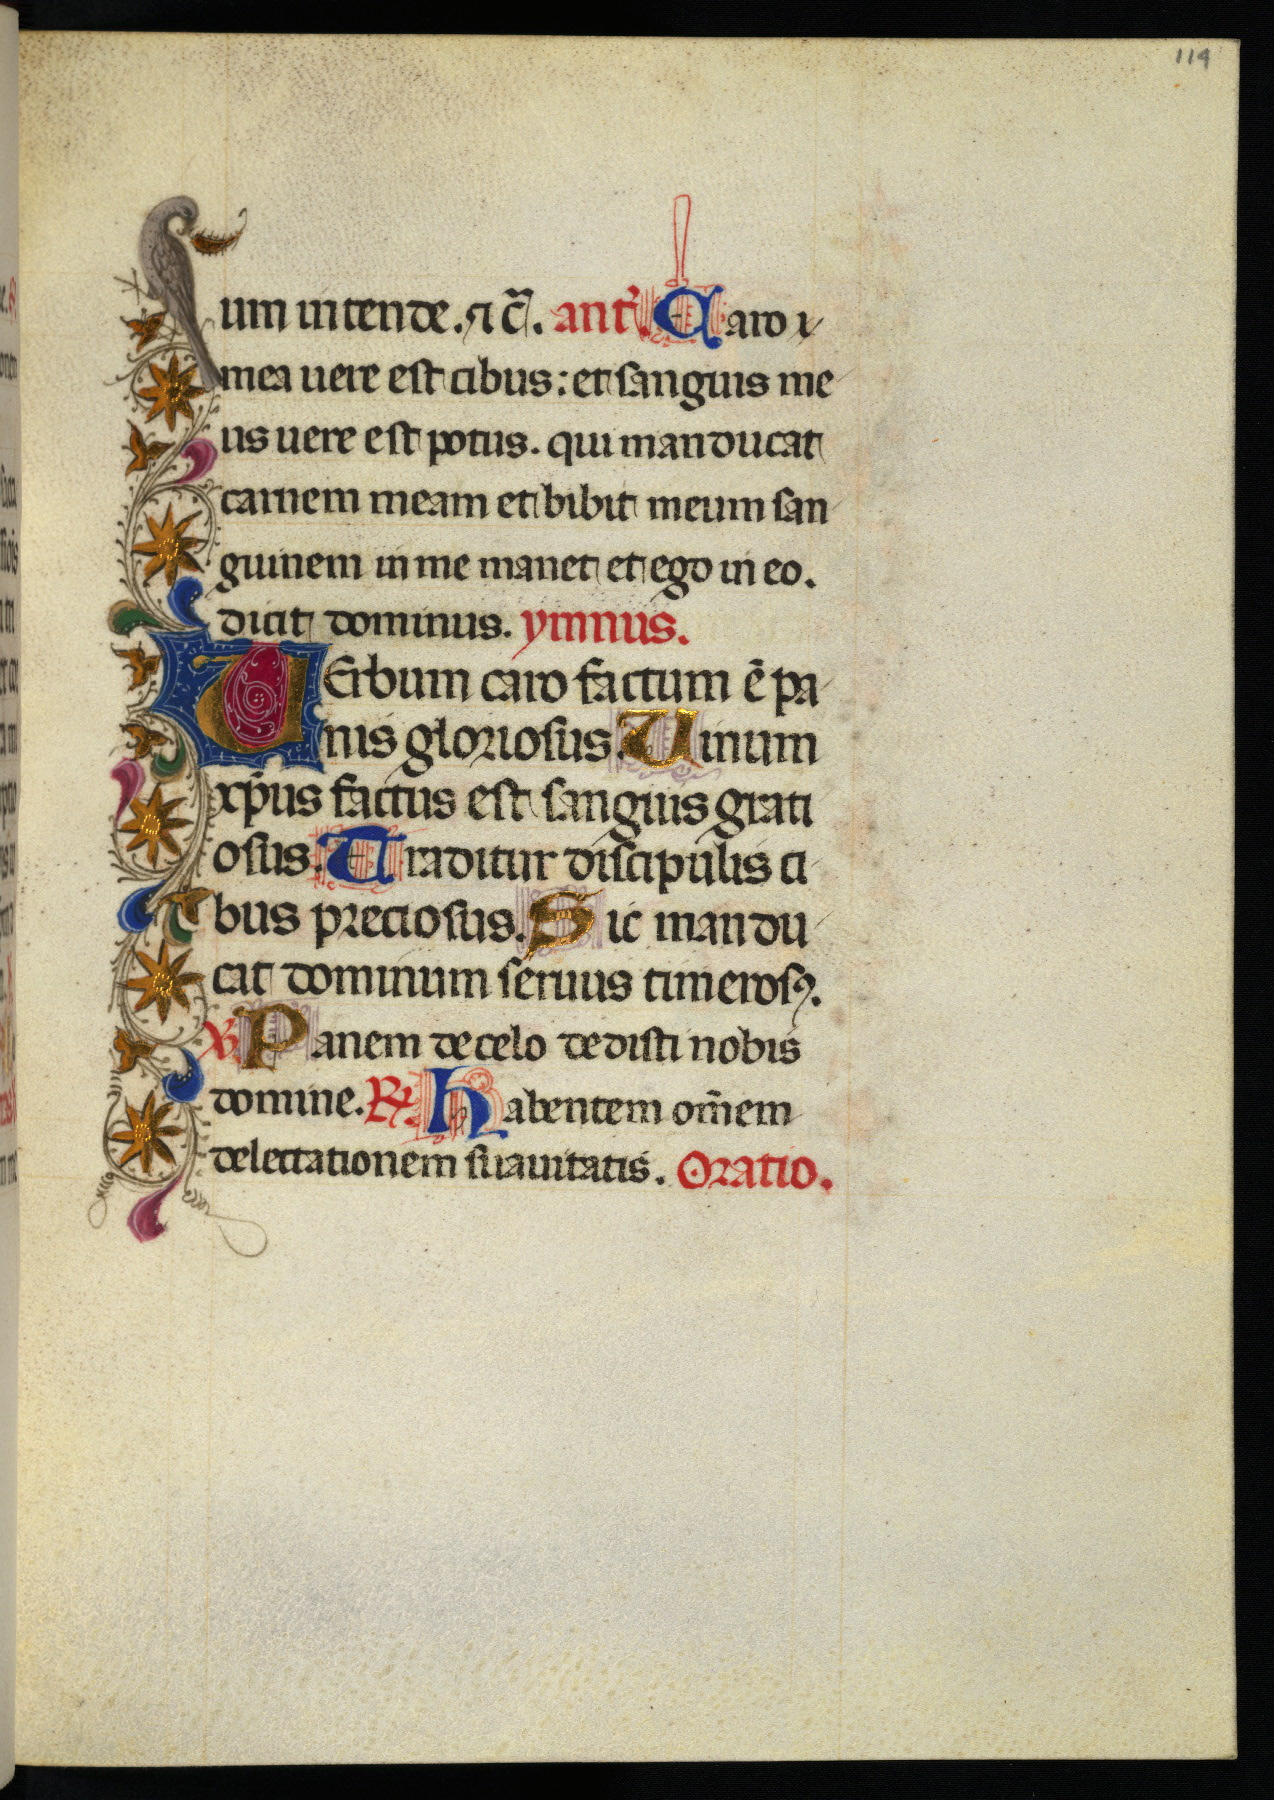 114
um intende. ⁊ c̃. ant̃. Caro
mea uere est cibus: et sanguis me
us uere est potus. qui manducat
carnem meam et bibit meum san
guinem in me manet et ego in eo.
dicit dominus. ymnus.
VErbum caro factum ē pa
nis gloriosus. Vinum
xp̄us factus est sanguis grati
osus. Traditur discipulis ci
bus preciosus. Sic mandu
cat dominum seruus timerosꝰ.
℣. Panem de celo dedisti nobis
domine. ℟. Habentem om̄em
delectationem suauitatis. Oratio.